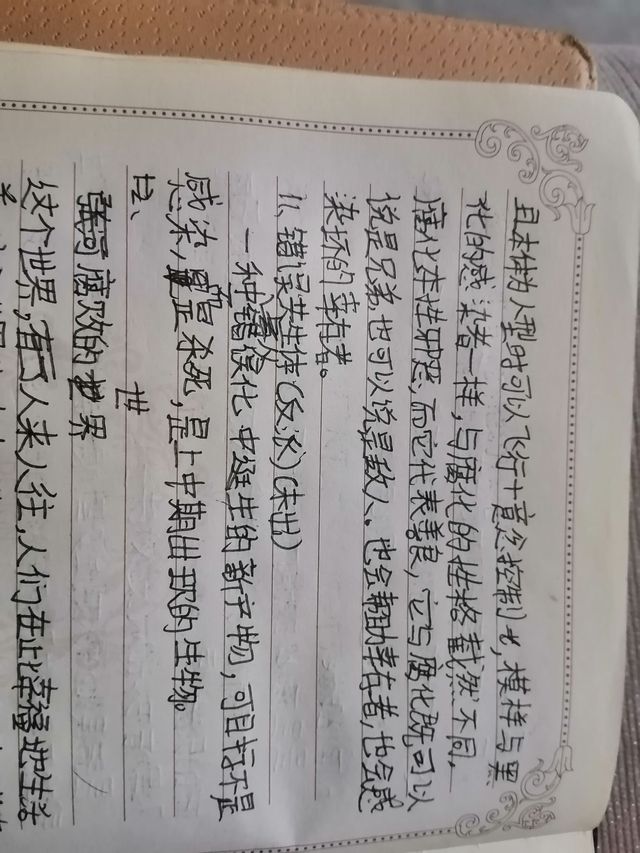 且本体为人型时可以飞行+意念控制), 模样与黑
化的感染者一样, 与腐化的性格截然不同,
腐化本性邪恶, 而它代表善良, 它与腐化既可以
说是兄弟, 也可以说是敌人。也会帮助幸存者, 也会感
染坏的幸存者。
11、错误共生体(反派)(未出)
一种错误化中诞生的新产物, 可目标不是
感染, 而是杀死, 是上中期出现的生物。
世
腐败的世界
这个世界, 有人来人往, 人们在此幸福地生活